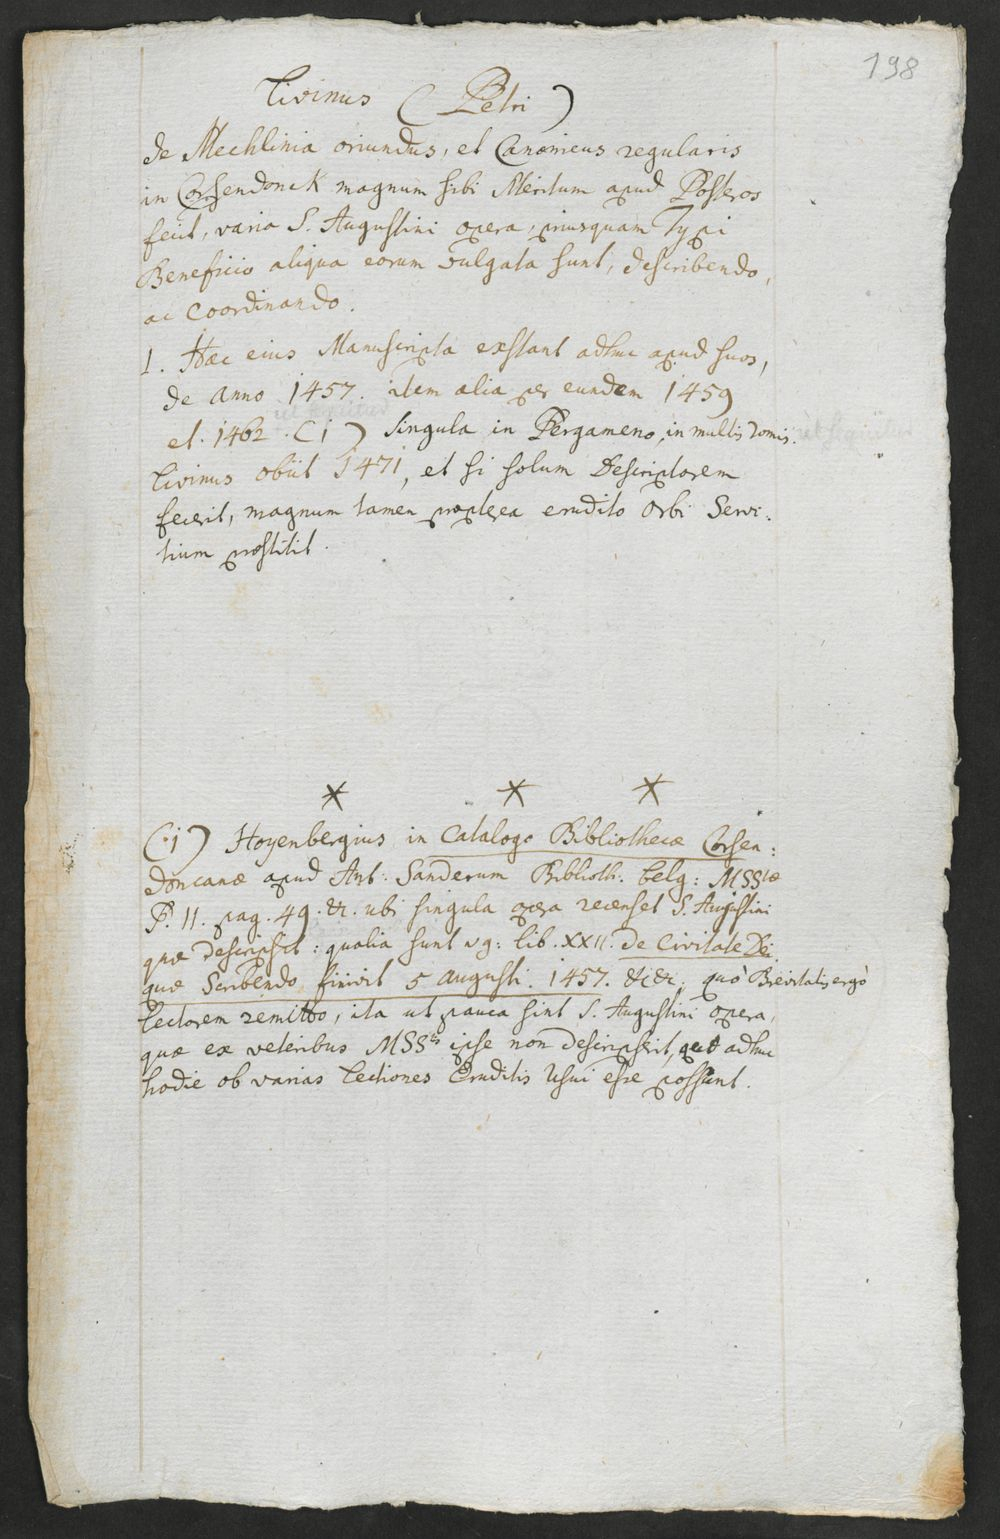 198
Livinus (Petri)
de Mechlinia oriundus, et Canonicus regularis
in Corsendonck magnum sibi Meritum apud Posteros
fecit, varia S. Augustini opera, priusquam Typi
Beneficio aliqua eorum vulgata sunt, describendo,
ac coordinando.
1. Hæc eius Manuscripta exstant adhuc apud suos,
de anno 1457. item alia per eundem 1459
et. 1462. (1) singula in Pergameno, in multis tomis.
Livinus obiit 1471, et si solum Descriptorem
fecerit, magnum tamen propterea erudito orbi Servi:
tium præstitit.
* * *
(1) Hoyenbergius in Catalogo Bibliothecæ Corsen:
doncanæ apud Ant: Sanderum Biblioth: belg: MSStæ
P. 11. pag. 49. &. ubi singula opera recenset S. Augustini
quæ descripsit: qualia sunt vg: lib. XXII. de Civitate Dei
quæ Scribendo finivit 5 augusti. 1457. &c&c. quò Brevitatis ergò
Lectorem remitto, ita ut pauca sint S. Augustini opera,
quæ ex veteribus MSStis ipse non descripserit, quæ adhuc
hodie ob varias Lectiones Eruditis Usui esse possunt.